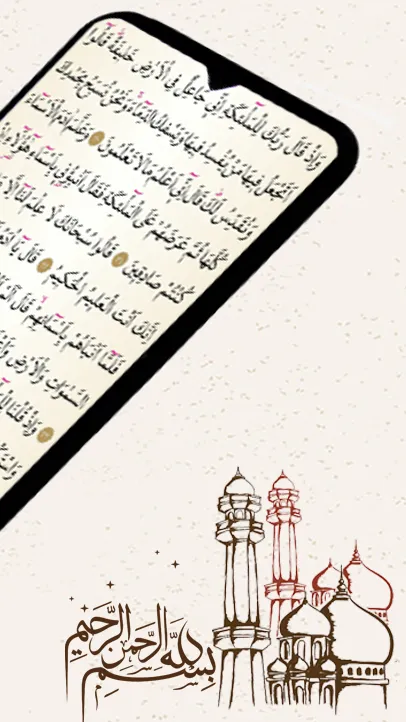 وَإِذْ قَالَ رَبُّكَ لِلْمَلٰٓئِكَةِ اِنّٖي جَاعِلٌ فِي الْاَرْضِ خَلٖيفَةً قَالُوا
اَتَجْعَلُ فٖيهَا مَنْ يُفْسِدُ فٖيهَا وَيَسْفِكُ الدِّمَٓاءَ وَنَحْنُ نُسَبِّحُ بِحَمْدِكَ
وَنُقَدِّسُ لَكَ قَالَ اِنّٖٓي اَعْلَمُ مَا لَا تَعْلَمُونَ وَعَلَّمَ اٰدَمَ الْاَسْمَٓاءَ
كُلَّهَا ثُمَّ عَرَضَهُمْ عَلَى الْمَلٰٓئِكَةِ فَقَالَ اَنْبِؤُ۫نٖي بِاَسْمَٓاءِ هٰٓؤُ۬لَٓاءِ
كُنْتُمْ صَادِقٖينَ قَالُوا سُبْحَانَكَ لَا عِلْمَ لَنَٓا اِلَّا
اِنَّكَ اَنْتَ الْعَلٖيمُ الْحَكٖيمُ قَالَ يَٓا اٰدَمُ
فَلَمَّٓا اَنْبَاَهُمْ بِاَسْمَٓائِهِمْ قَالَ
السَّمٰوَاتِ وَالْاَرْضِ
وَاِذْ قُلْنَا
بِسْمِ اللّٰهِ الرَّحْمٰنِ الرَّحِيْمِ